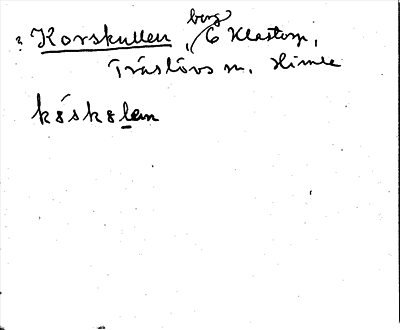 ? Korskullen, berg 6 Klastorp,
Träslövs sn. Himle
kɔ́skɔlen